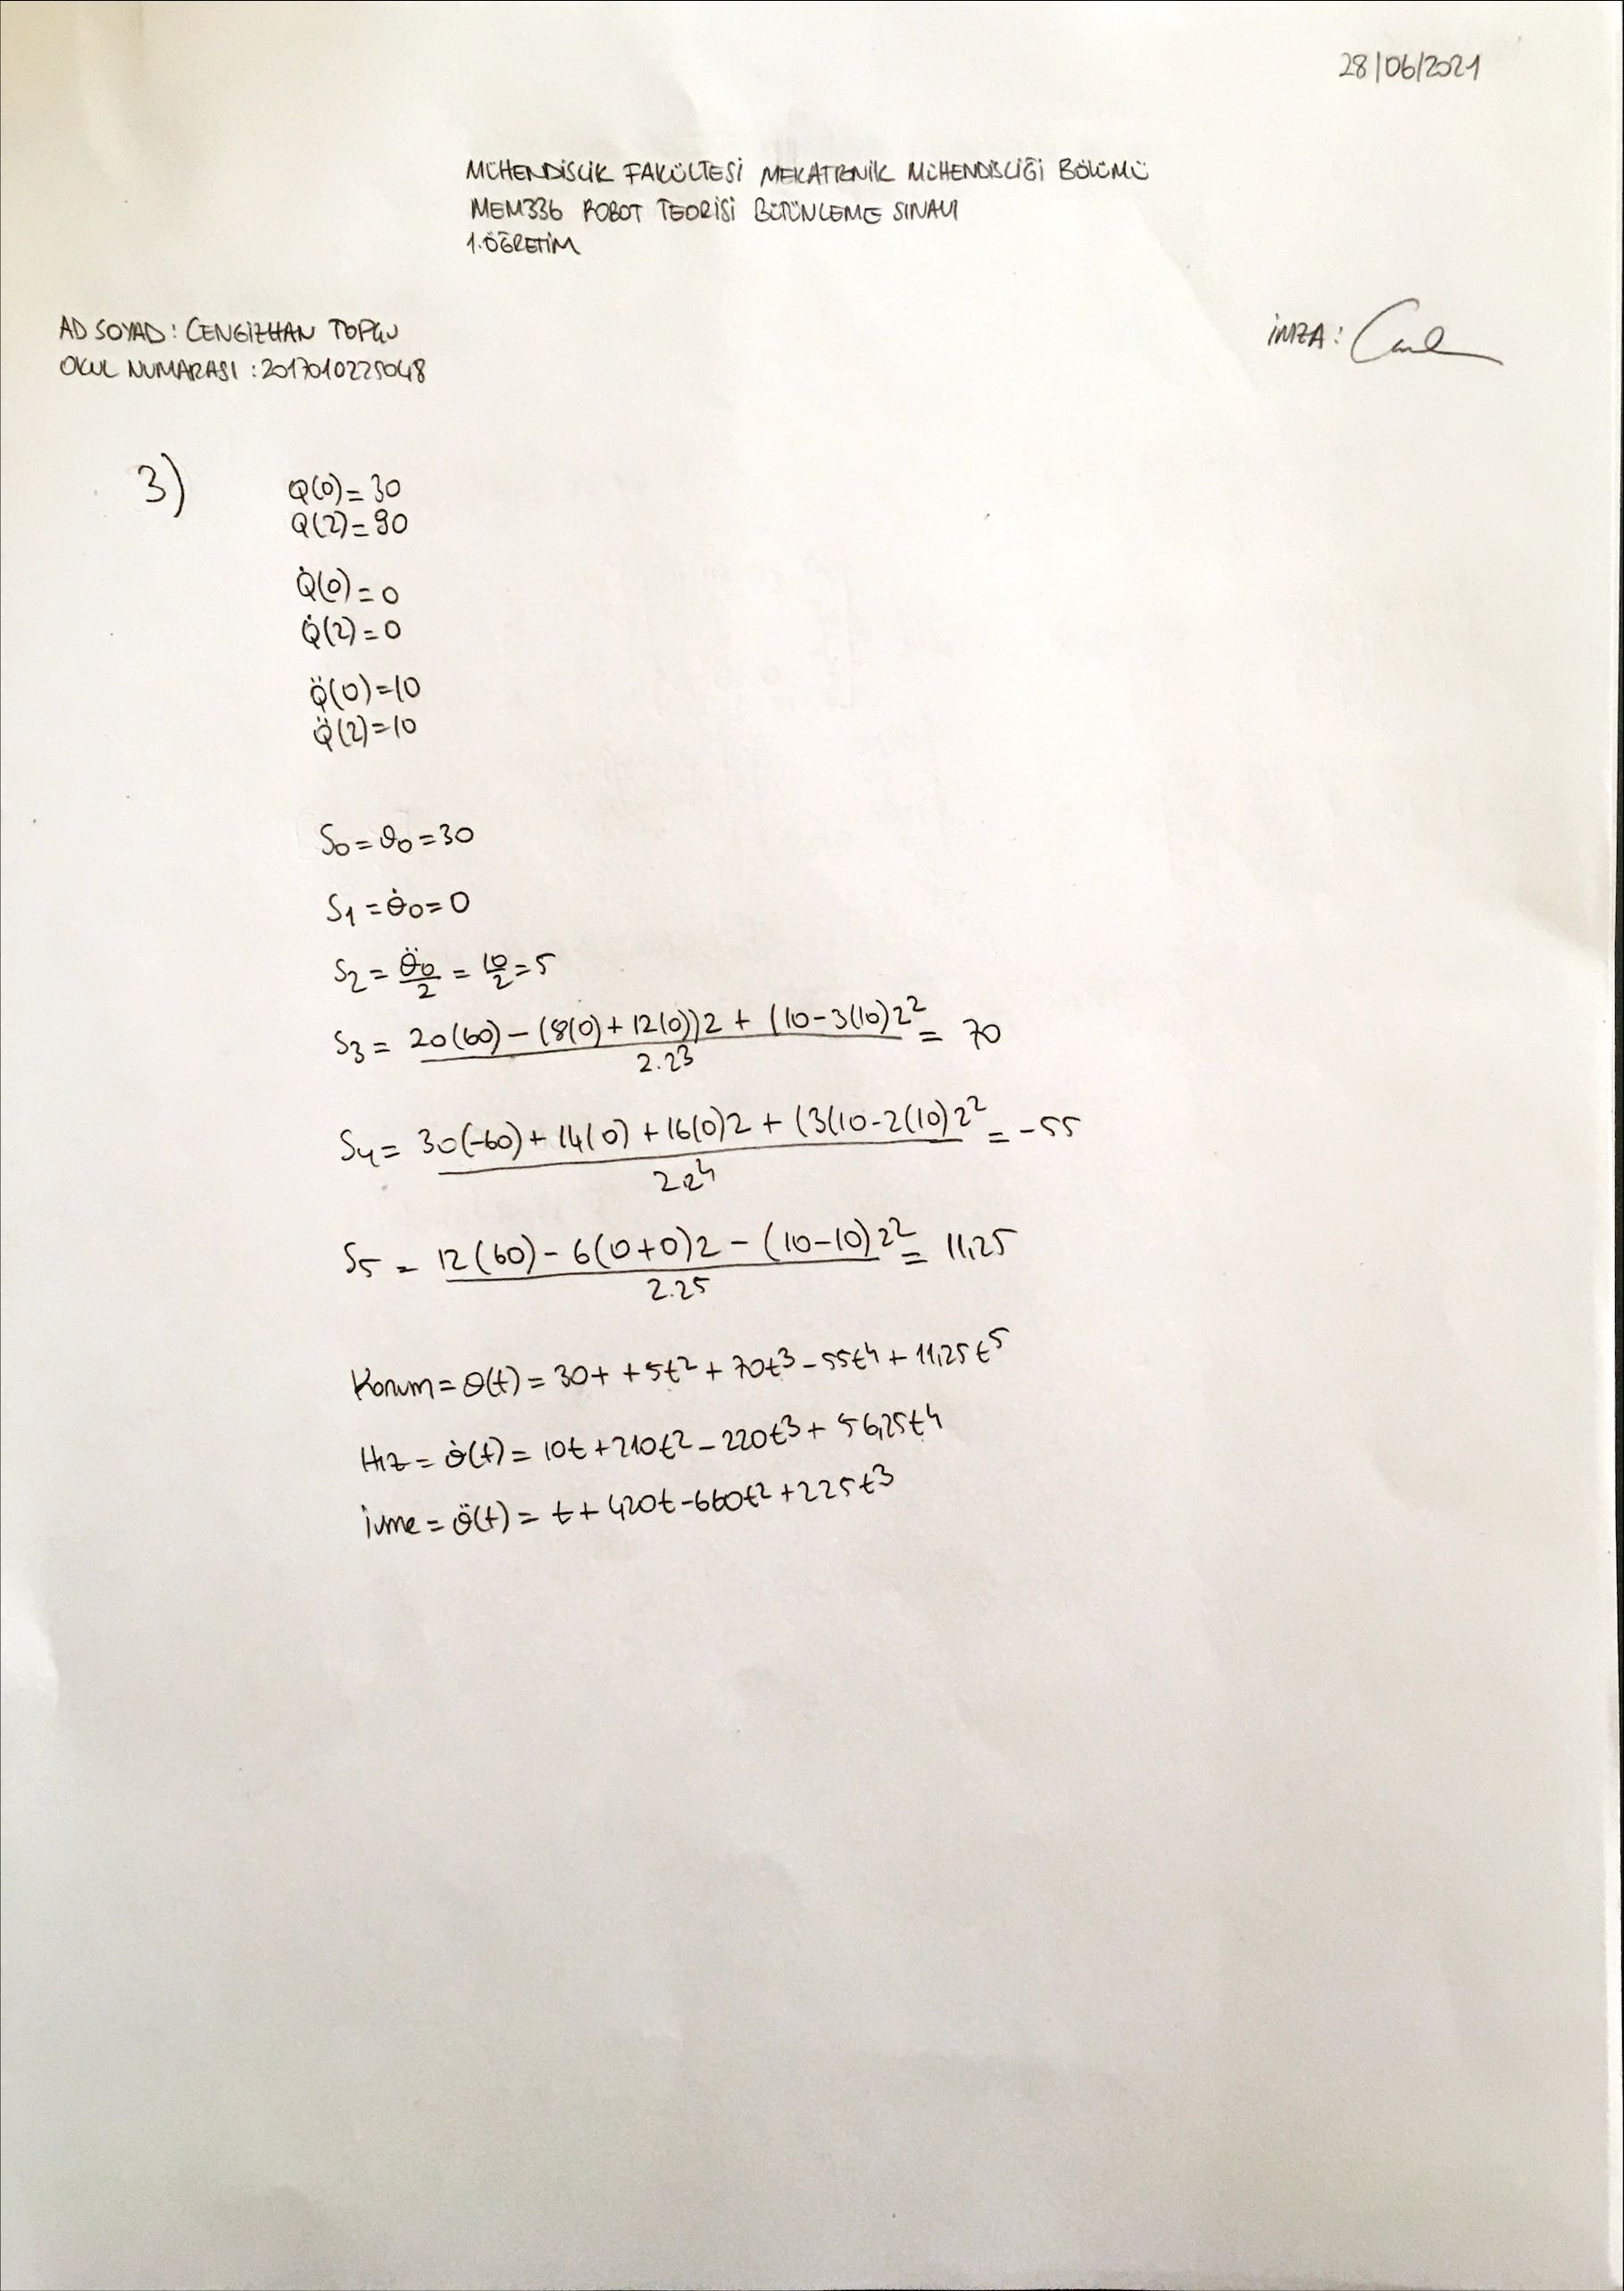 28/06/2021
MÜHENDİSLİK FAKÜLTESİ MEKATRONİK MÜHENDİSLİĞİ BÖLÜMÜ
MEM336 ROBOT TEORİSİ BÜTÜNLEME SINAVI
1.ÖĞRETİM
AD SOYAD: CENGİZHAN TOPÇU
İMZA:
OKUL NUMARASI: 2017010225048
3)
Q(0)=30
Q(2)=90
Q̇(0)=0
Q̇(2)=0
Q̈(0)=10
Q̈(2)=10
S₀=θ₀=30
S₁=θ̇₀=0
S₂ = θ̈₀/2 = 10/2 = 5
S₃ = 20(60)-(8(0)+12(0))2 + (10-3(10)2² / 2.2³ = 70
S₄ = 30(-60)+14(0)+16(0)2 + (3(10-2(10)2² / 2.2⁴ = -55
S₅ = 12(60)-6(0+0)2-(10-10)2² / 2.2⁵ = 11,25
Konum = θ(t) = 30t + 5t² + 70t³ - 55t⁴ + 11,25t⁵
Hız = θ̇(t) = 10t + 210t² - 220t³ + 56,25t⁴
İvme = θ̈(t) = t + 420t - 660t² + 225t³